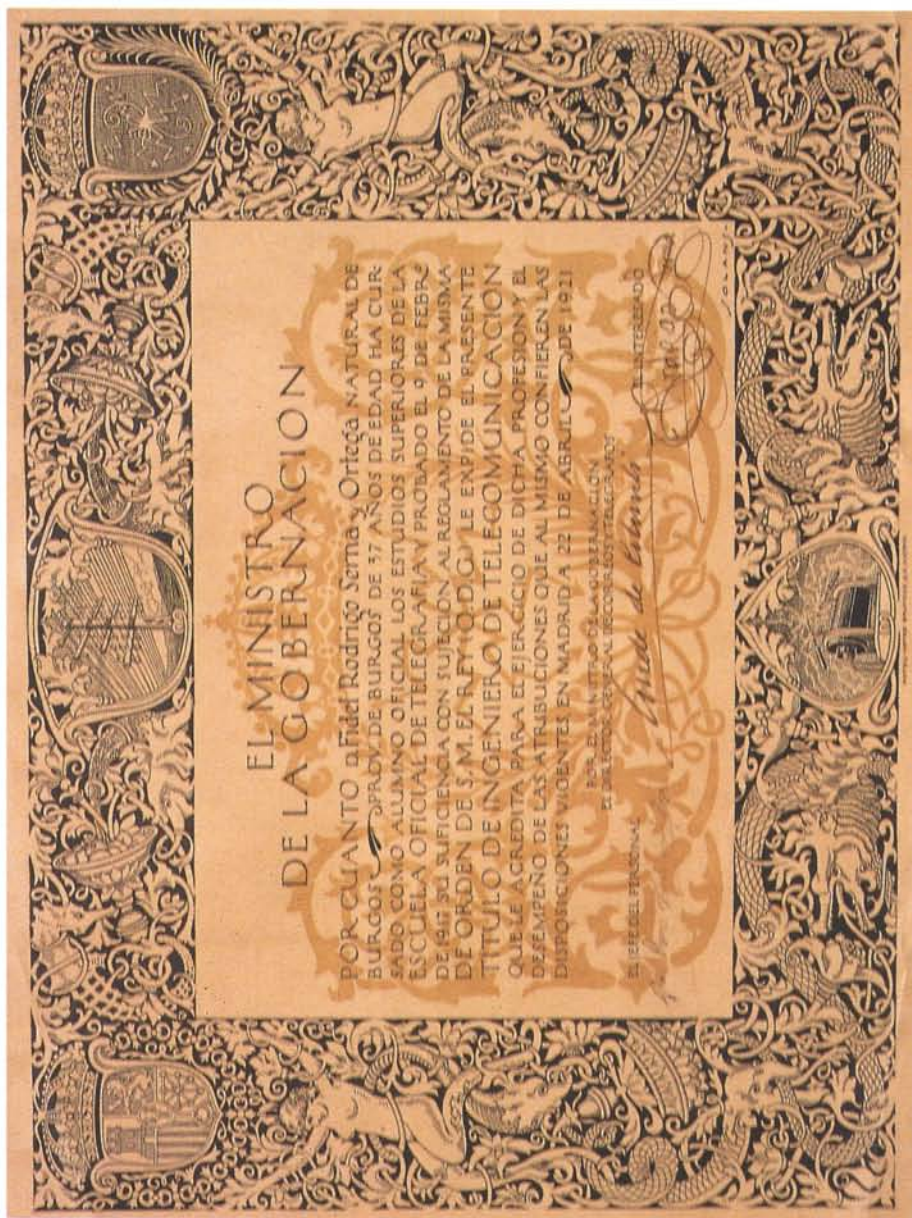 EL MINISTRO
DE LA GOBERNACION
POR CUANTO D. Fidel Rodrigo Serna y Ortega NATURAL DE
BURGOS PROV. DE BURGOS DE 37 AÑOS DE EDAD HA CUR-
SADO COMO ALUMNO OFICIAL LOS ESTUDIOS SUPERIORES DE LA
ESCUELA OFICIAL DE TELEGRAFIA Y PROBADO EL 9 DE FEBRº
DE 1917 SU SUFICIENCIA CON SUJECION AL REGLAMENTO DE LA MISMA
DE ORDEN DE S. M. EL REY (Q.D.G.) LE EXPIDE EL PRESENTE
TITULO DE INGENIERO DE TELECOMUNICACION
QUE LE ACREDITA PARA EL EJERCICIO DE DICHA PROFESION Y EL
DESEMPEÑO DE LAS ATRIBUCIONES QUE AL MISMO CONFIEREN LAS
DISPOSICIONES VIGENTES EN MADRID A 22 DE ABRIL DE 1921
POR EL MINISTRO DE LA GOBERNACION
EL DIRECTOR GENERAL DE CORREOS Y TELEGRAFOS
EL JEFE DEL PERSONAL
EL INTERESADO